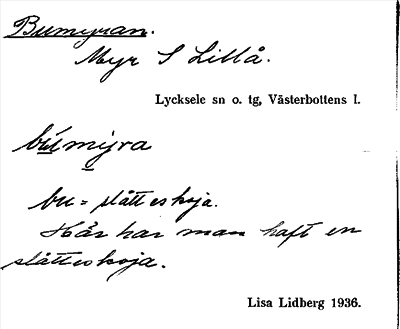 Bumyran.
Myr S Lillå.
Lycksele sn o. tg, Västerbottens l.
búmyra
bu = slåtteskoja.
Här har man haft en
slåtteskoja.
Lisa Lidberg 1936.